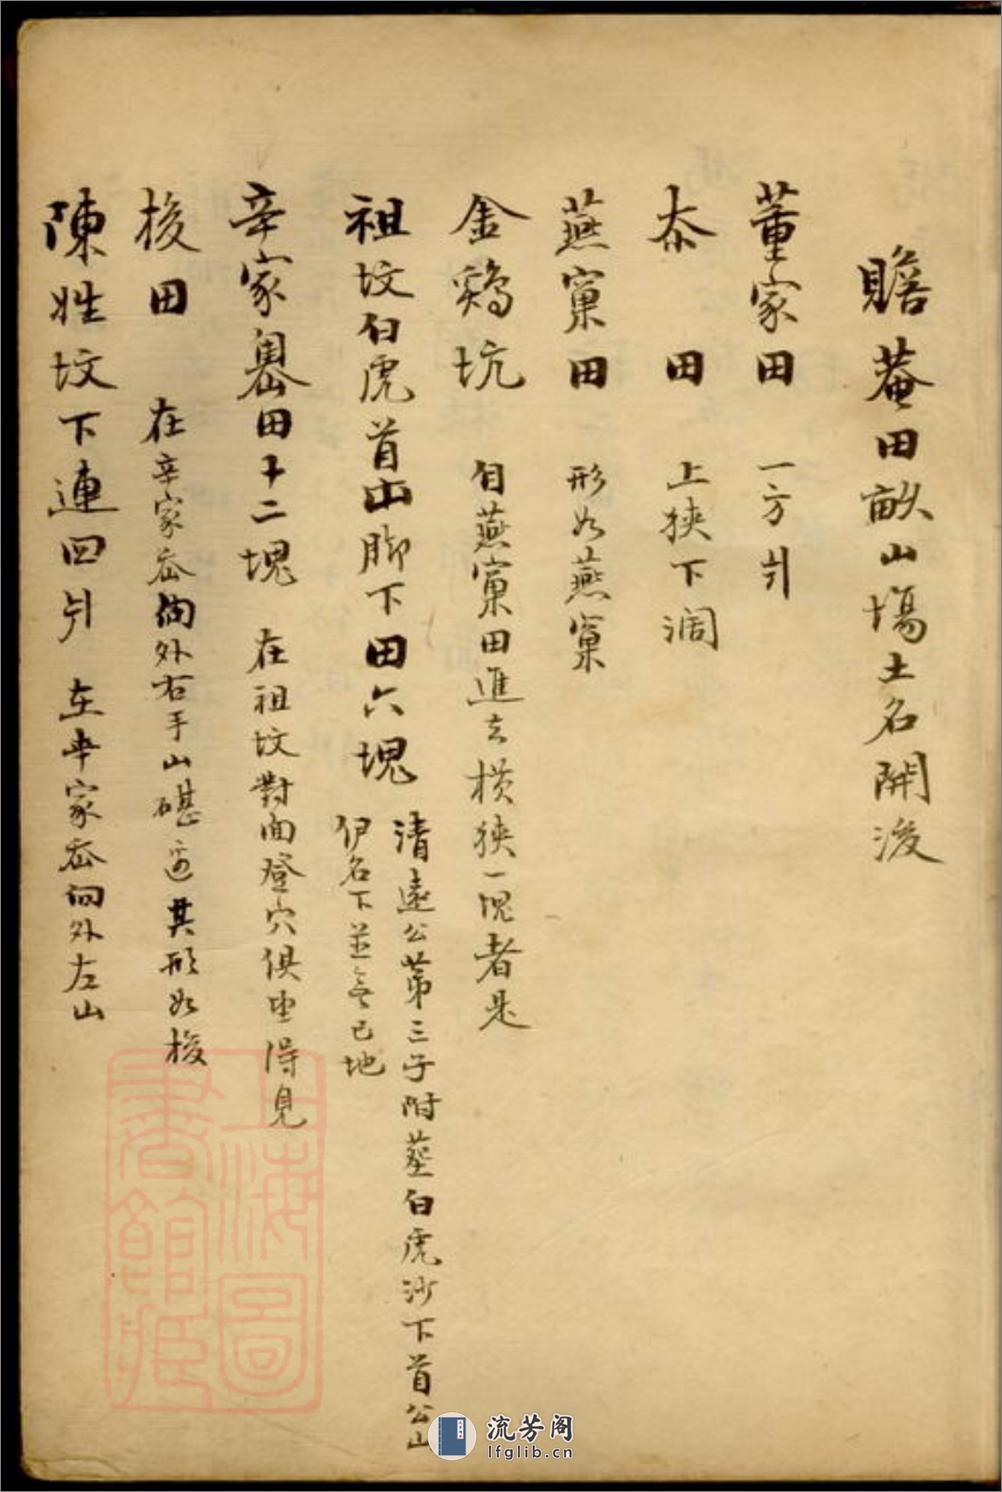 贍菴田畝山場土名開後
董家田 一方引
泰田 上狹下濶
燕窠田 形如燕窠
金鷄坑 自燕窠田進去橫狹一塊者是
祖坟白虎首山脚下田六塊
清遠公第三子附葬白虎沙下首公山
伊名下並無已地
辛家嶴田十二塊 在祖坟對面登穴俱望得見
梭田 在辛家岙向外右手山磡邊其形如梭
陳姓坟下連四引 在辛家岙向外左山
上海圖書館藏
流芳阁
lfglib.cn